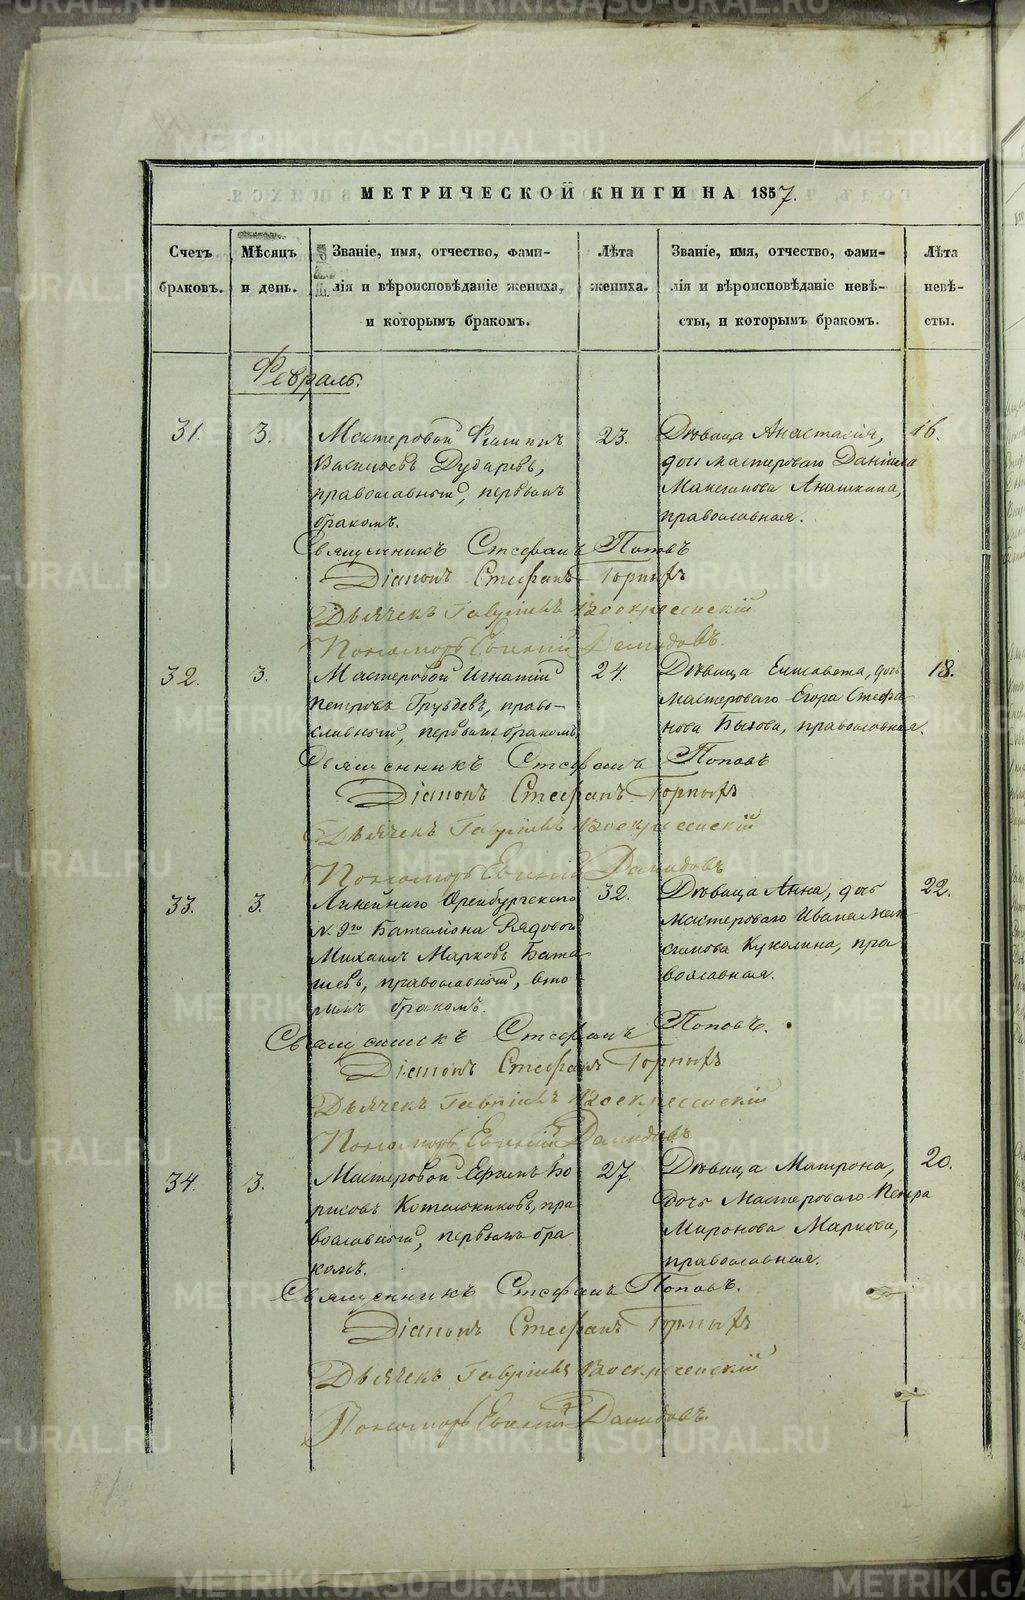 METRIKI.GASO-URAL.RU
МЕТРИЧЕСКОЙ КНИГИ НА 1857.
Счетъ браковъ.
Мѣсяцъ и день.
Званіе, имя, отчество, фами-
лія и вѣроисповѣданіе жениха,
и которымъ бракомъ.
Лѣта жениха.
Званіе, имя, отчество, фами-
лія и вѣроисповѣданіе невѣ-
сты, и которымъ бракомъ.
Лѣта невѣ-
сты.
Февраль.
31.
3.
Мастеровой Филипъ
Васильевъ Дударевъ,
православный, первымъ
бракомъ.
23.
Дѣвица Анастасія,
дочь мастероваго Даніила
Максимова Анашкина,
православная.
16.
Священникъ Стефанъ Поповъ
Діаконъ Стефанъ Горныхъ
Дьячекъ Гавріилъ Воскресенскій
Пономарь Евгеній Давидовъ.
32.
3.
Мастеровой Игнатій
Петровъ Груздевъ, право-
славный, первымъ бракомъ.
24.
Дѣвица Елисавета, дочь
мастероваго Егора Стефа
нова Быкова, православная.
18.
Священникъ Стефанъ Поповъ
Діаконъ Стефанъ Горныхъ
Дьячекъ Гавріилъ Воскресенскій
Пономарь Евгеній Давидовъ
33.
3.
Линейнаго Оренбургскаго
№ 9го Баталіона Рядовой
Михаилъ Марковъ Бата
шевъ, православный, вто-
рымъ бракомъ.
32.
Дѣвица Анна, дочь
мастероваго Ивана Мак
симова Куколина, пра
вославная.
22.
Священникъ Стефанъ Поповъ.
Діаконъ Стефанъ Горныхъ
Дьячекъ Гавріилъ Воскресенскій
Пономарь Евгеній Давидовъ
34.
3.
Мастеровой Ефимъ Бо
рисовъ Котельниковъ, пра
вославный, первымъ бра
комъ.
27.
Дѣвица Матрона,
дочь Мастероваго Петра
Миронова Маркова,
православная.
20.
Священникъ Стефанъ Поповъ.
Діаконъ Стефанъ Горныхъ
Дьячекъ Гавріилъ Воскресенскій
Пономарь Евгеній Давидовъ.